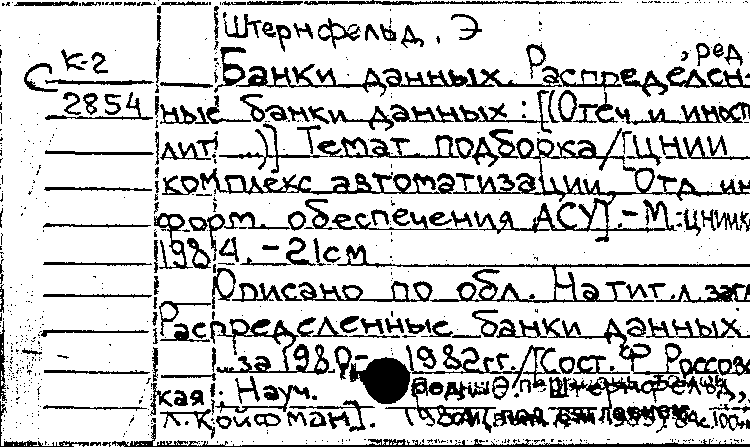 Штернфельд, Э
К-2
2854
, ред
Банки данных. Распределен-
ные банки данных: [(Отеч. и иност
лит ...)] Темат. подборка/[ЦНИИ
комплекс автоматизации, Отд ин
форм. обеспечения АСУ].-М.:ЦНИИК
1984. -21см
Описано по обл. На тит.л. загл
Распределенные банки данных
...за 1980- 1982гг./[Сост. Ф Россов
кая; Науч.
Л.Койфман].